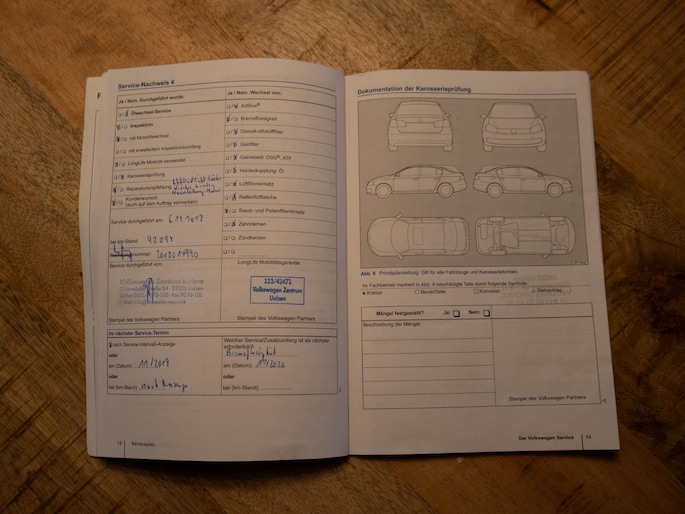 Service-Nachweis 4
Ja / Nein. Durchgeführt wurde:
Ölwechsel-Service
Inspektion
mit Motorölwechsel
mit erweitertem Inspektionsumfang
LongLife Motoröl verwendet
Karosserieprüfung
Reparaturempfehlung
Kundenwunsch
(auch auf dem Auftrag vermerken)
Service durchgeführt am: 6.11.2017
bei km-Stand:
nummer:
Service durchgeführt von:
Volkswagen Zentrum Uelzen
Stempel des Volkswagen Partners
Ja / Nein. Wechsel von:
AdBlue®
Bremsflüssigkeit
Dieselkraftstofffilter
Gasfilter
Getriebeöl: DSG®, ATF
Haldexkupplung: Öl
Luftfiltereinsatz
Reifenfüllflasche
Staub- und Pollenfiltereinsatz
Zahnriemen
Zündkerzen
LongLife Mobilitätsgarantie:
123/42471
Volkswagen Zentrum
Uelzen
Stempel des Volkswagen Partners
Ihr nächster Service-Termin
nach Service-Intervall-Anzeige
oder
am (Datum): 11/2019
oder
bei (km-Stand): nach Anzeige
Welcher Service/Zusatzumfang ist als nächster
erforderlich?
am (Datum):
oder
bei (km-Stand):
12 Serviceplan
Dokumentation der Karosserieprüfung
Abb. 6 Prinzipdarstellung. Gilt für alle Fahrzeuge und Karosserieformen.
Ihr Fachbetrieb markiert in Abb. 6 beschädigte Teile durch folgende Symbole:
Kratzer Beule/Delle Korrosion Steinschlag
Mängel festgestellt? Ja: Nein:
Beschreibung der Mängel:
Stempel des Volkswagen Partners
Der Volkswagen Service 13